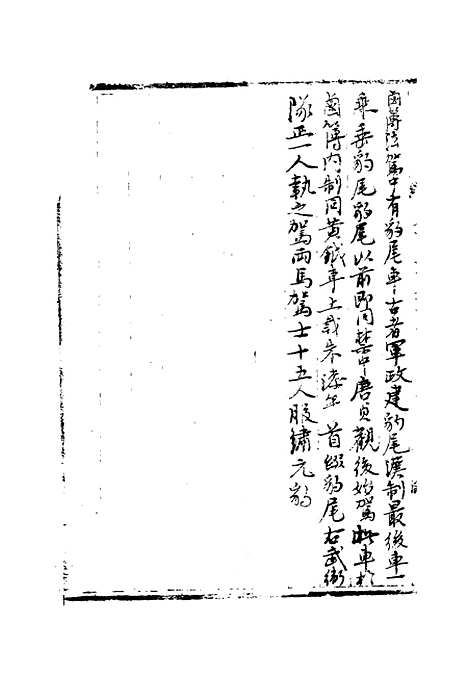 鹵簿法駕中有豹尾車古者軍政建豹尾漢制最後車一
乘垂豹尾豹尾以前即同禁中唐貞觀後始駕此車於
鹵簿內制同黃鉞車上載朱漆竿首綴豹尾右武衛
隊正一人執之駕兩馬駕士十五人服繡元豹